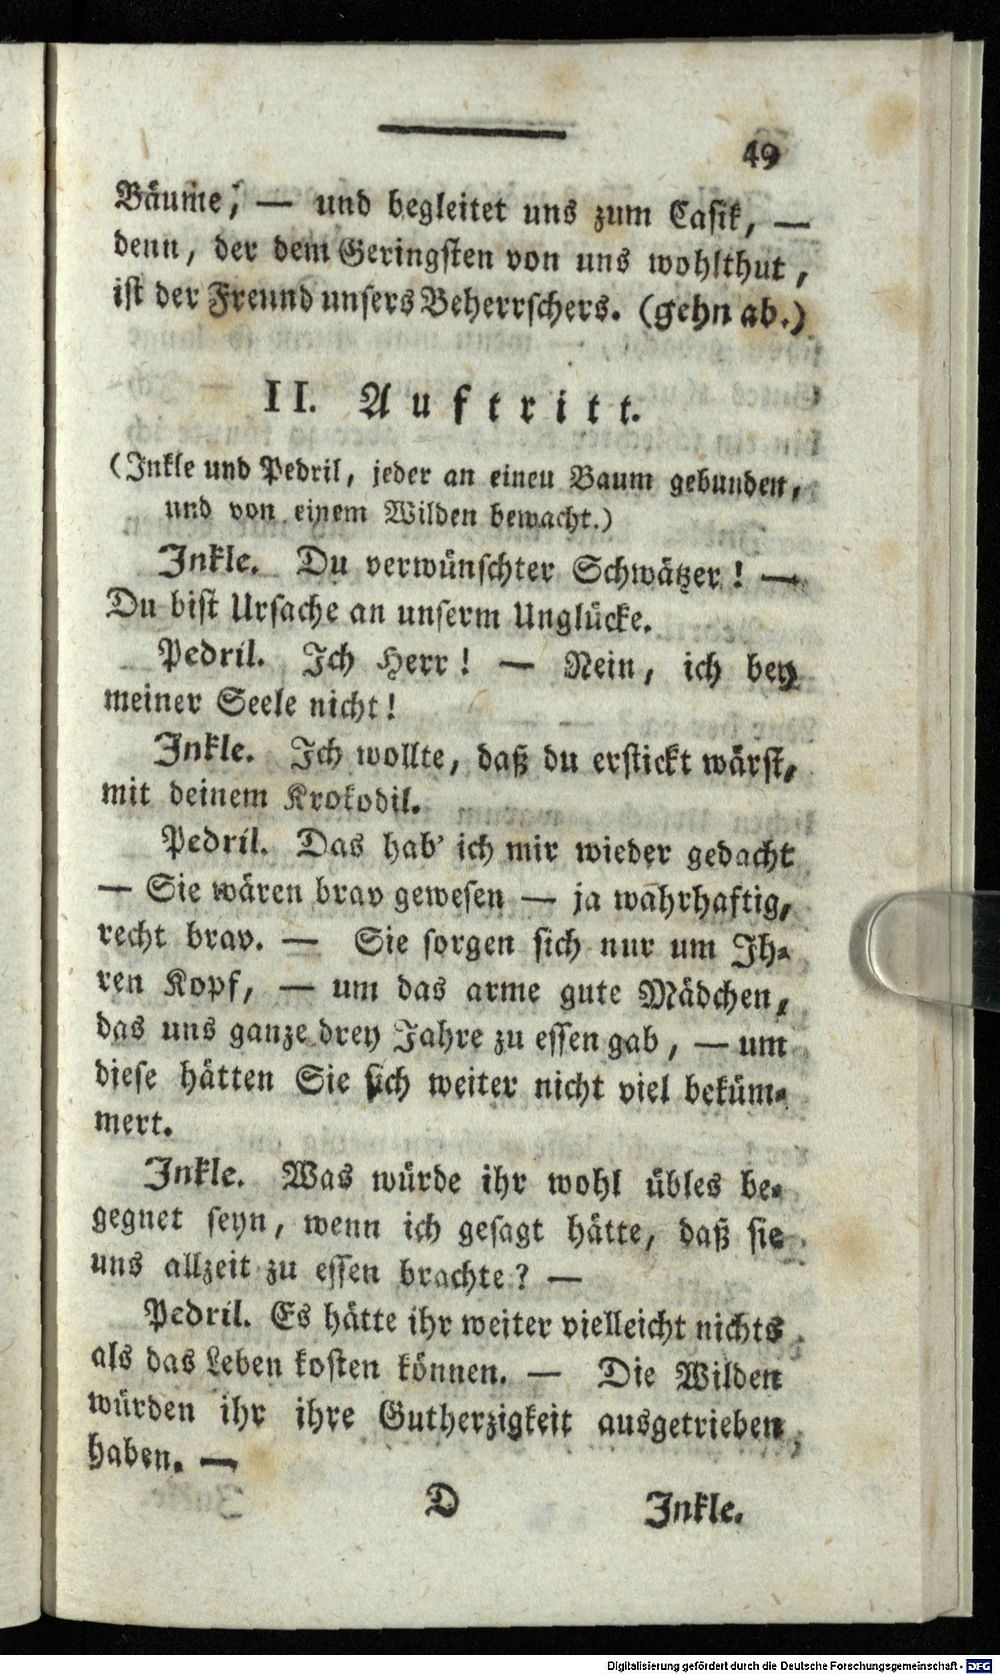 49
Bäume, — und begleitet uns zum Casik, —
denn, der dem Geringsten von uns wohlthut,
ist der Freund unsers Beherrschers. (gehn ab.)
II. Auftritt.
(Inkle und Pedril, jeder an einen Baum gebunden,
und von einem Wilden bewacht.)
Inkle. Du verwünschter Schwätzer! —
Du bist Ursache an unserm Unglücke.
Pedril. Ich Herr! — Nein, ich bey
meiner Seele nicht!
Inkle. Ich wollte, daß du erstickt wärst,
mit deinem Krokodil.
Pedril. Das hab' ich mir wieder gedacht
— Sie wären brav gewesen — ja wahrhaftig,
recht brav. — Sie sorgen sich nur um Ih-
ren Kopf, — um das arme gute Mädchen,
das uns ganze drey Jahre zu essen gab, — um
diese hätten Sie sich weiter nicht viel beküm-
mert.
Inkle. Was würde ihr wohl übles be-
gegnet seyn, wenn ich gesagt hätte, daß sie
uns allzeit zu essen brachte? —
Pedril. Es hätte ihr weiter vielleicht nichts
als das Leben kosten können. — Die Wilden
würden ihr ihre Gutherzigkeit ausgetrieben
haben. —
D Inkle.
Digitalisierung gefördert durch die Deutsche Forschungsgemeinschaft - DFG